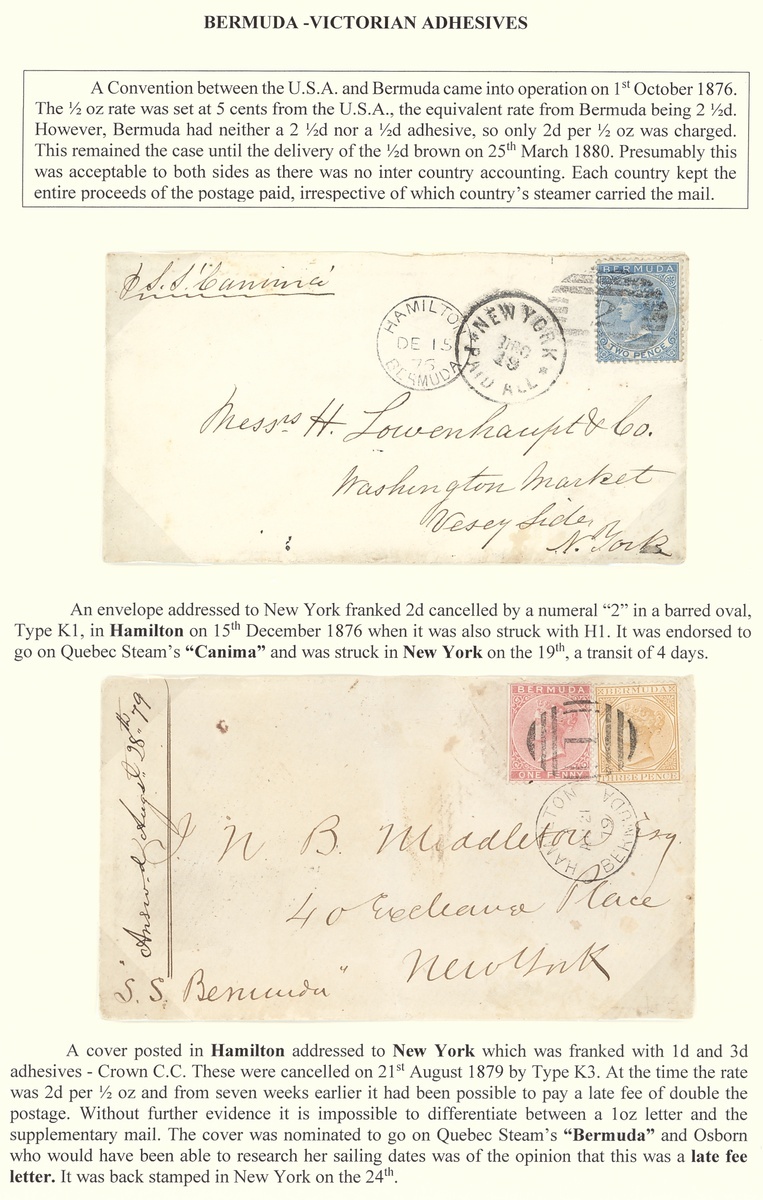 BERMUDA -VICTORIAN ADHESIVES
A Convention between the U.S.A. and Bermuda came into operation on 1st October 1876.
The ½ oz rate was set at 5 cents from the U.S.A., the equivalent rate from Bermuda being 2 ½d.
However, Bermuda had neither a 2 ½d nor a ½d adhesive, so only 2d per ½ oz was charged.
This remained the case until the delivery of the ½d brown on 25th March 1880. Presumably this
was acceptable to both sides as there was no inter country accounting. Each country kept the
entire proceeds of the postage paid, irrespective of which country's steamer carried the mail.
S.S. "Canima"
HAMILTON
DE 15
BERMUDA
NEW YORK
19
PAID ALL
BERMUDA
TWO PENCE
Messrs H. Lowenhaupt & Co.
Washington Market
Vesey Side
N. York
An envelope addressed to New York franked 2d cancelled by a numeral "2" in a barred oval,
Type K1, in Hamilton on 15th December 1876 when it was also struck with H1. It was endorsed to
go on Quebec Steam's "Canima" and was struck in New York on the 19th, a transit of 4 days.
Answ.d Augst 28th 79
BERMUDA
ONE PENNY
BERMUDA
THREE PENCE
1
HAMILTON
BERMUDA
J. N. B. Middleton Esq.
40 Exchange Place
New York
"S. S. Bermuda"
A cover posted in Hamilton addressed to New York which was franked with 1d and 3d
adhesives - Crown C.C. These were cancelled on 21st August 1879 by Type K3. At the time the rate
was 2d per ½ oz and from seven weeks earlier it had been possible to pay a late fee of double the
postage. Without further evidence it is impossible to differentiate between a 1oz letter and the
supplementary mail. The cover was nominated to go on Quebec Steam's "Bermuda" and Osborn
who would have been able to research her sailing dates was of the opinion that this was a late fee
letter. It was back stamped in New York on the 24th.